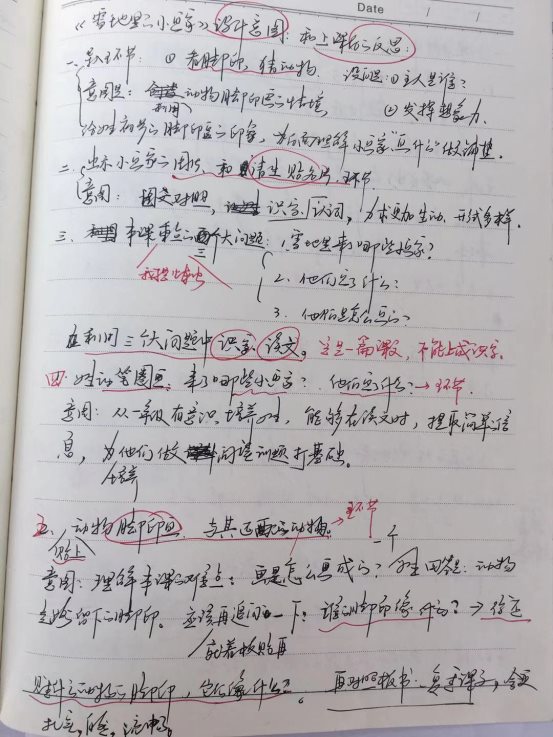 Date
《雪地里的小画家》设计意图: 和上课后的反思:
一、导入环节: ① 看脚印, 猜动物. 设问: ① 主人是谁?
意图是: 利用动物脚印画的情境 ② 发挥想象力.
给好有弯弯的脚印画的印象, 为后面理解小画家画什么做铺垫.
二、出示小画家的图片, 和请生贴名片, 环节.
意图: 图文对照, 识字认词, 为求更加生动, 形式多样.
三、本课重点三大问题: 1. 雪地里来了哪些画家?
2. 他们画了什么?
3. 他们是怎么画的?
在利用三个大问题中识字、读文。 这是一篇课, 不能上成识字.
四. 好动笔圈画. 来了哪些小画家? 他们画什么? → 环节.
意图: 从一年级有意识培养好, 能够在读文时, 提取简单信
息, 为他们做阅读训题打基础。
培养
五、动物脚印图 与其画的动物. → 环节
贴上 一个
意图: 理解本课的难点: 画是怎么画成的? 生回答: 动物
走路留下的脚印. 应该再追问一下: 谁的脚印像什么? →
就着板贴再
什么动物的脚印, 它们像什么?。 再对照板书: 复述课文, 会更
扎实,